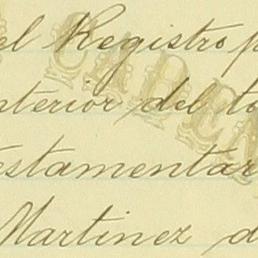 el Registro p
nterior del to
estamentar
Martinez d